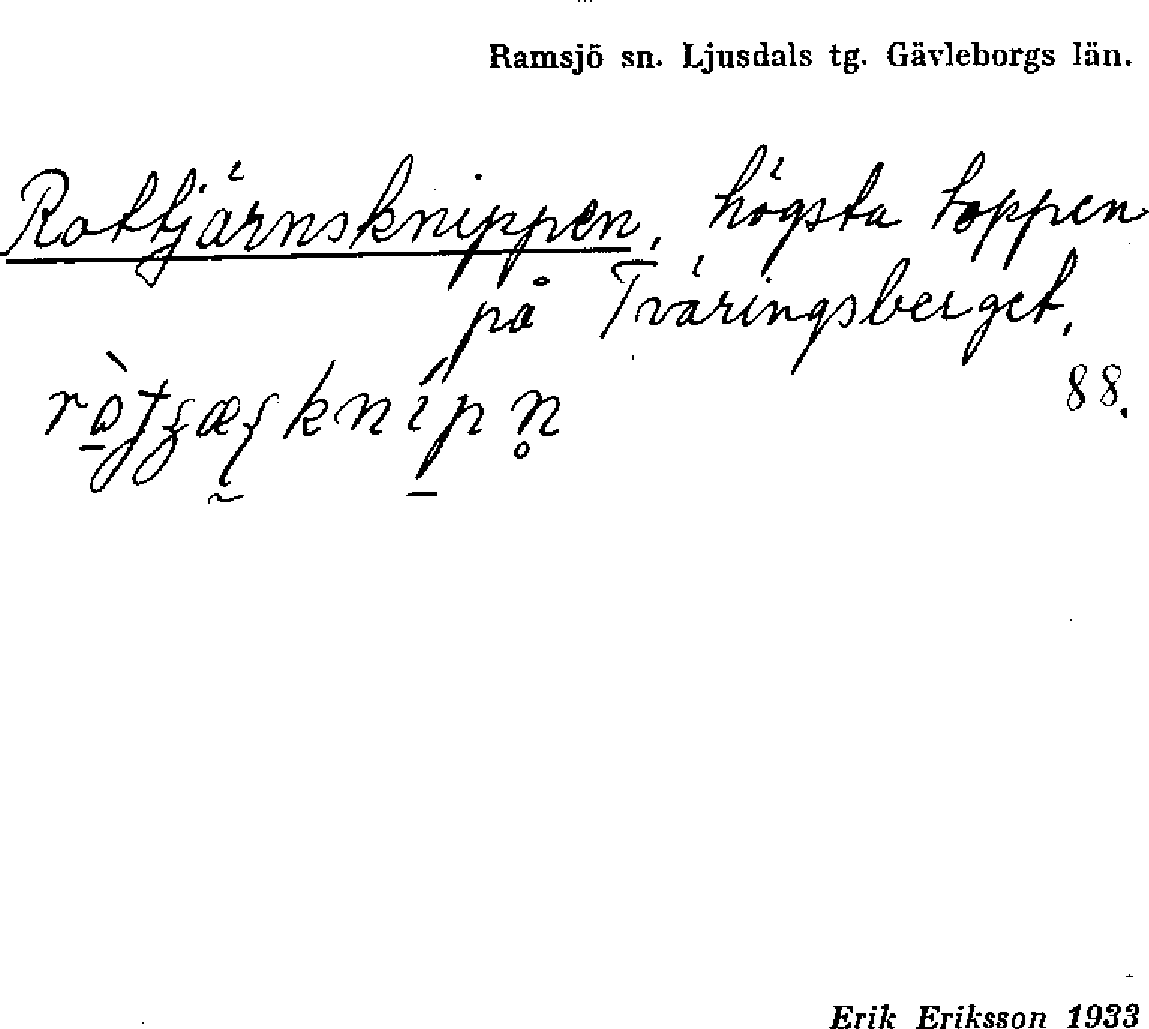 Ramsjö sn. Ljusdals tg. Gävleborgs län.
Rottjärnsknippen, högsta toppen
på Tväringsberget.
88.
Erik Eriksson 1933